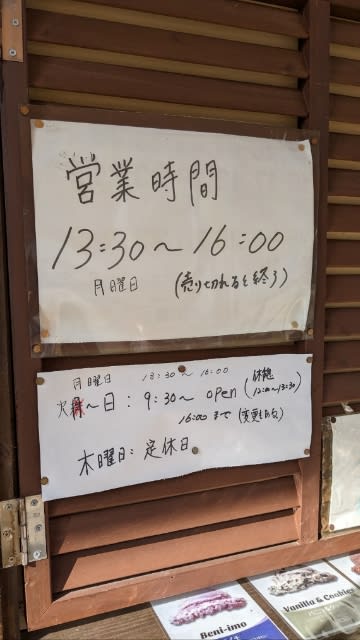 営業時間
13:30～16:00
月曜日 (売り切れると終了)
月曜日 13:30～16:00
火～日: 9:30～ open (休憩 12:00～13:30)
16:00まで (変更もあり)
木曜日: 定休日
Beni-imo
Vanilla & Cookies